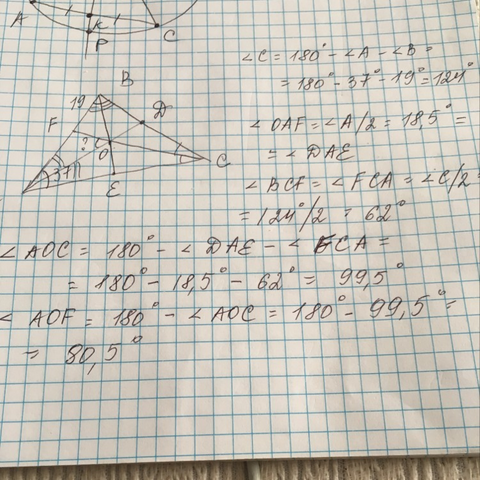 A
K
P
C
B
19
D
F
?
O
37
C
E
∠C = 180° - ∠A - ∠B =
= 180° - 37° - 19° = 124°
∠OAF = ∠A/2 = 18,5° =
= ∠DAE
∠BCF = ∠FCA = ∠C/2 =
= 124°/2 = 62°
∠AOC = 180° - ∠DAE - ∠FCA =
= 180° - 18,5° - 62° = 99,5°
∠AOF = 180° - ∠AOC = 180° - 99,5° =
= 80,5°